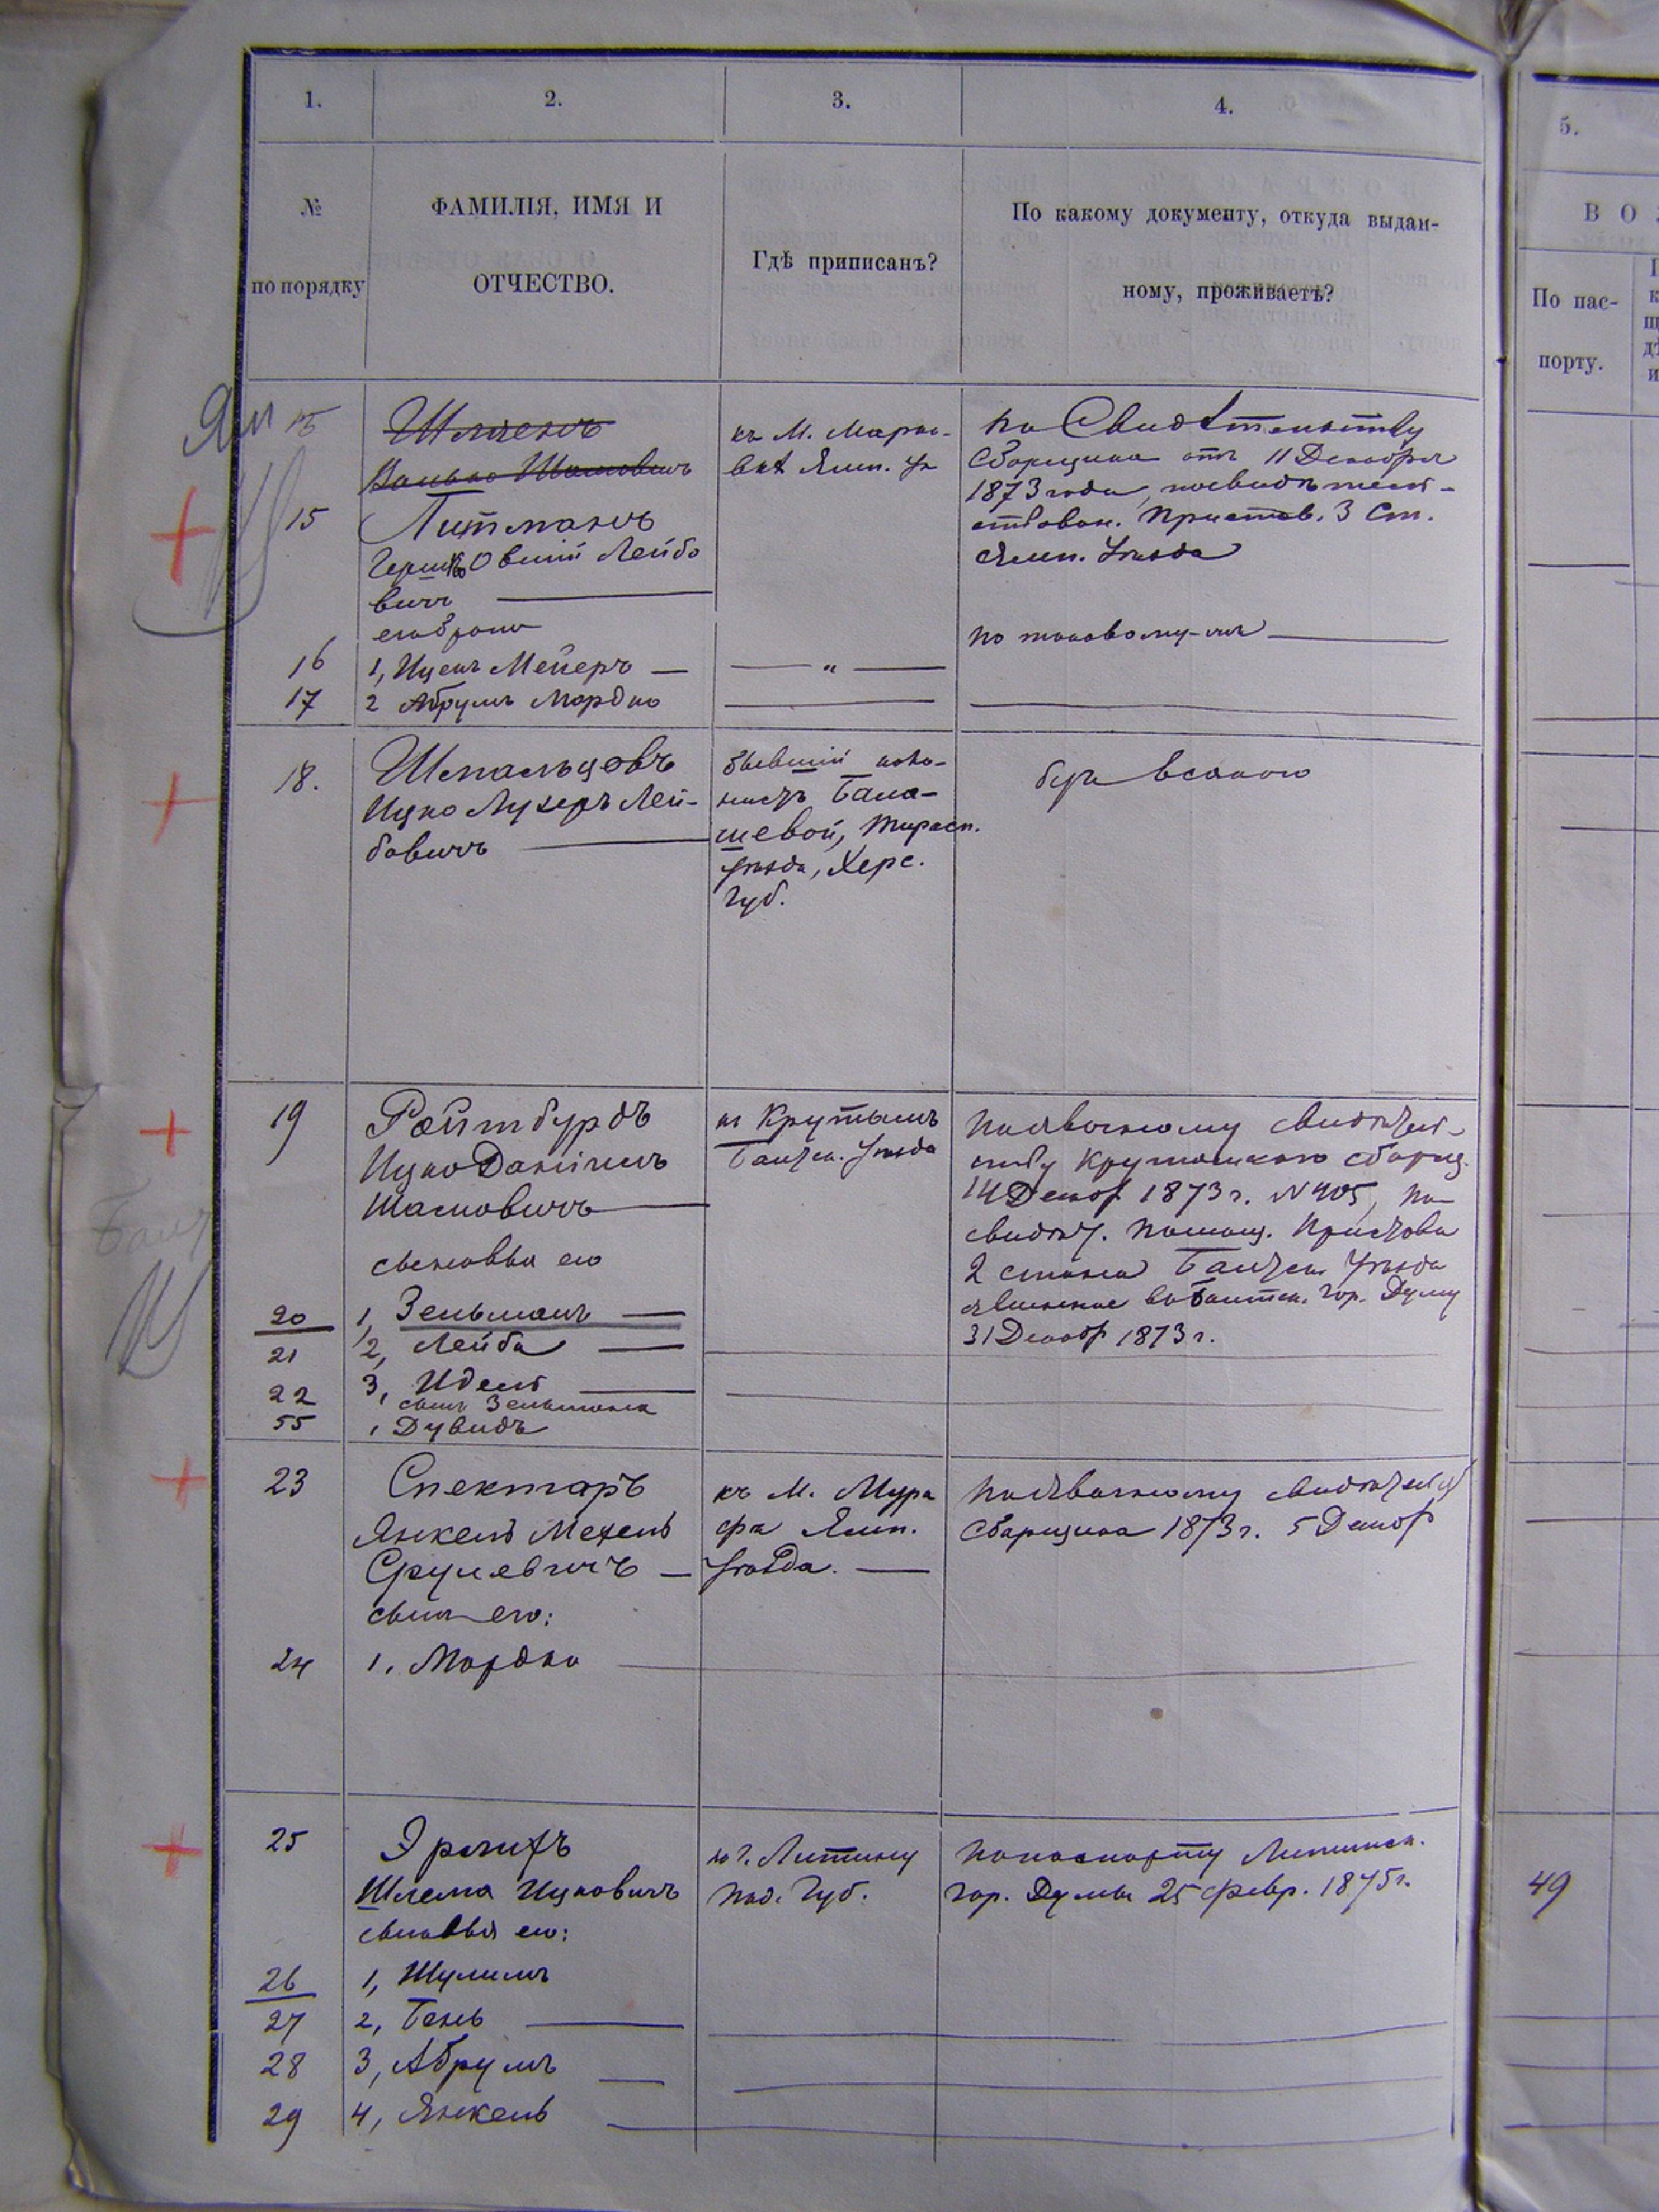 1.
2.
3.
4.
5.
№
по порядку
ФАМИЛІЯ, ИМЯ И
ОТЧЕСТВО.
Гдѣ приписанъ?
По какому документу, откуда выдан-
ному, проживаетъ?
ВО
По пас-
порту.
Ям 15
къ М. Марко-
вкѣ Ямп. у
по Свидѣтельству
Сборщика отъ 11 Декабря
1873 года, посвидѣтель-
ствован. Пристав. 3 Ст.
Ямп. Уѣзда
15
Литманъ
Гершко Овшій Лейбо
вичъ
по таковому-жъ
16
1, Ицекъ Мейеръ —
— „ —
17
2 Абрумъ Мордко
18.
Шпальцовъ
Ицко Лузеръ Лей-
бовичъ
бывшій коло-
нистъ Бала-
шевой, Тирасп.
уѣзда, Херс.
Губ.
безъ всякого
19
Ройтбурдъ
Ицко Даніилъ
Шамовичъ
сыновья его
къ Крутымъ
Балтск. Уѣзда
по явочному свидѣтель-
ству Крутянского сборщ.
14 Декаб 1873 г. № 405, по
свидѣт. помощ. Пристава
2 стана Балтск. Уѣзда
явленное въ Балтск. Гор. Думу
31 Декабр 1873 г.
20
1, Зельманъ —
21
2, Лейба —
22
3, Идель —
сынъ Зельмана
55
1 Дувидъ
Балт
23
Спекторъ
Янкель Мехель
Срулевичъ —
сынъ его:
къ М. Мура
фа Ямп.
Уѣзда. —
по явочному свидѣтельст
Сборщика 1873 г. 5 Декаб
24
1. Мордко
25
Эрлихъ
Шлема Ицковичъ
сыновья его:
къ г. Литину
Под. Губ.
по паспорту Литинск.
Гор. Думы 25 Февр. 1875 г.
49
26
1, Шулимъ
27
2, Бень
28
3, Абрумъ
29
4, Янкель